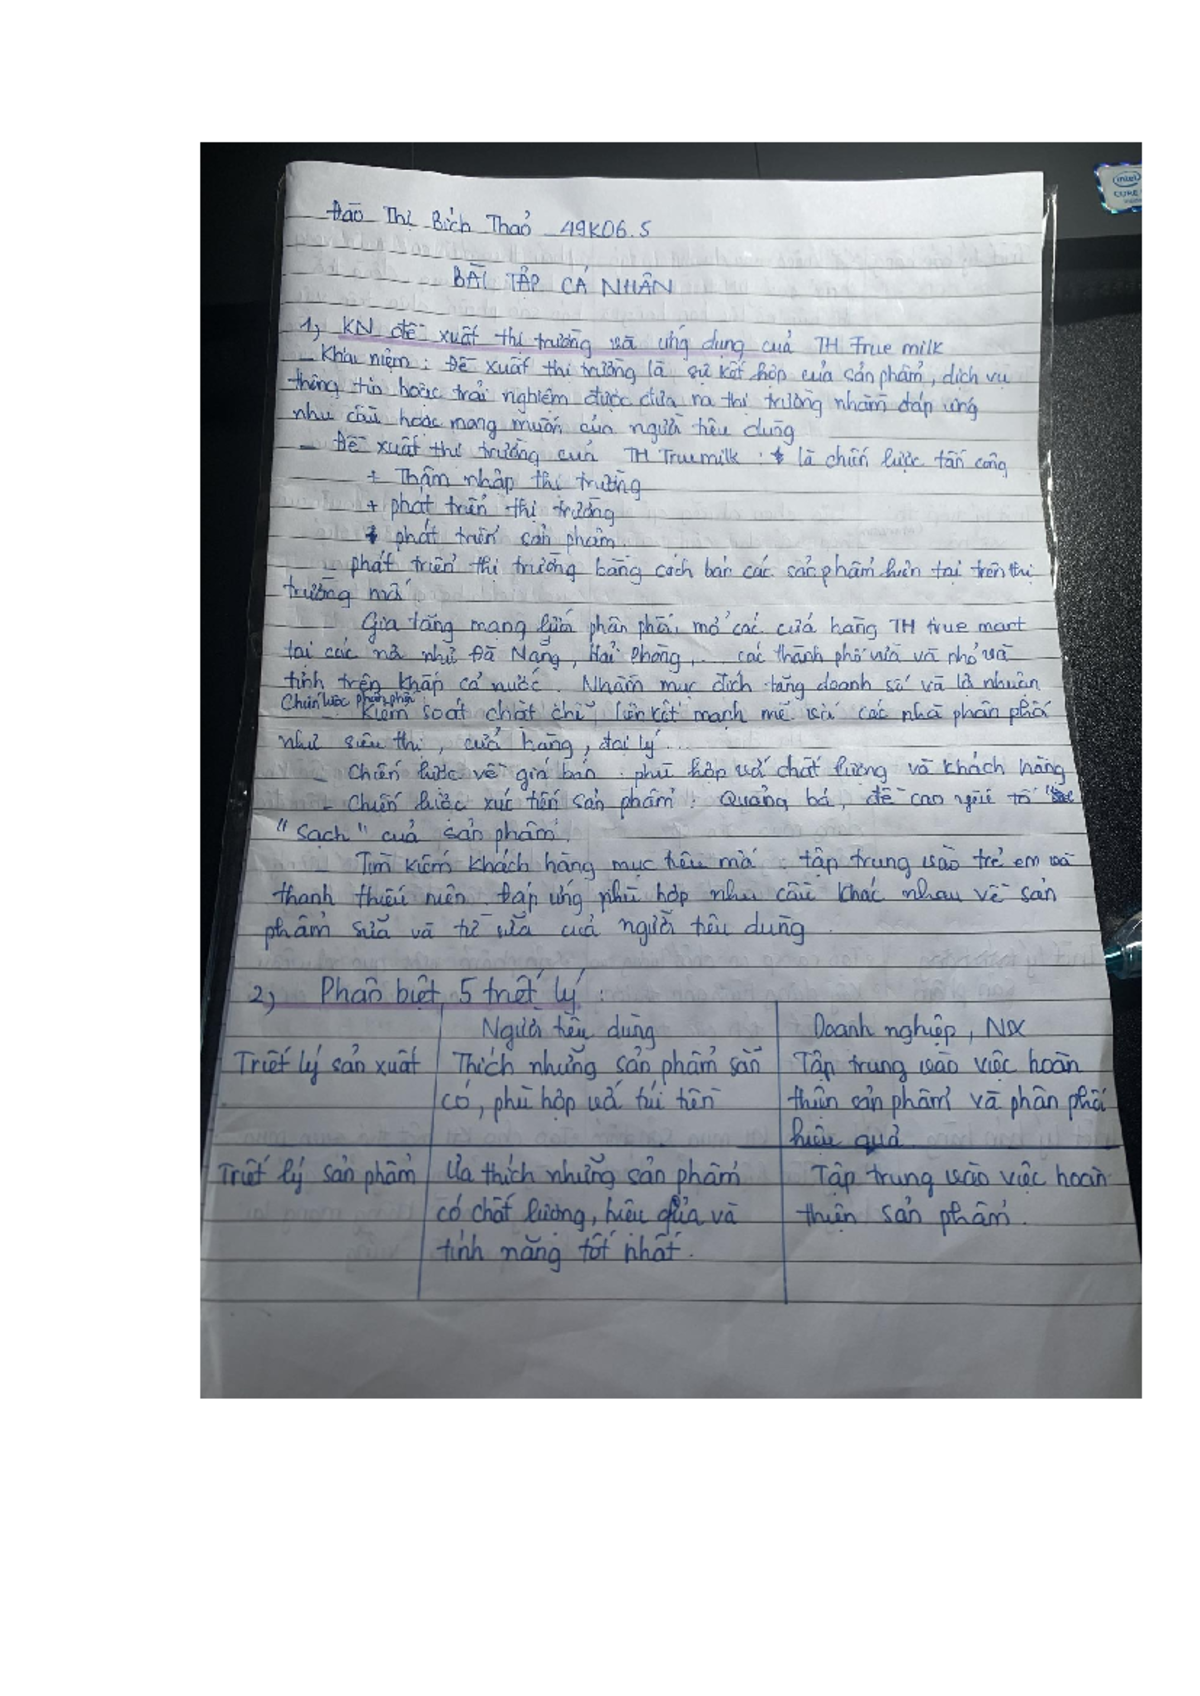 Đào Thị Bích Thảo 49K06.5
BÀI TẬP CÁ NHÂN
1, KN đề xuất thị trường và ứng dụng của TH True milk
- Khái niệm: Đề xuất thị trường là sự kết hợp của sản phẩm, dịch vụ
thông tin hoặc trải nghiệm được đưa ra thị trường nhằm đáp ứng
nhu cầu hoặc mong muốn của người tiêu dùng
- Đề xuất thị trường của TH True milk: là chiến lược tấn công
+ Thâm nhập thị trường
+ phát triển thị trường
+ phát triển sản phẩm
phát triển thị trường bằng cách bán các sản phẩm hiện tại trên thị
trường mới
- Gia tăng mạng lưới phân phối, mở các cửa hàng TH true mart
tại các nơi như Đà Nẵng, Hải Phòng, ... các thành phố vừa và nhỏ và
tỉnh trên khắp cả nước. Nhằm mục đích tăng doanh số và lợi nhuận
Chiến lược phân phối
- Kiểm soát chặt chẽ, liên kết mạnh mẽ với các nhà phân phối
như siêu thị, cửa hàng, đại lý...
- Chiến lược về giá bán: phù hợp với chất lượng và khách hàng
- Chiến lược xúc tiến sản phẩm: Quảng bá, đề cao yếu tố
"Sạch" của sản phẩm.
- Tìm kiếm khách hàng mục tiêu mới: tập trung vào trẻ em và
thanh thiếu niên. Đáp ứng phù hợp nhu cầu khác nhau về sản
phẩm sữa và từ sữa của người tiêu dùng.
2, Phân biệt 5 triết lý:
Người tiêu dùng Doanh nghiệp, NSX
Triết lý sản xuất Thích những sản phẩm sẵn Tập trung vào việc hoàn
có, phù hợp với túi tiền thiện sản phẩm và phân phối
hiệu quả.
Triết lý sản phẩm Ưa thích những sản phẩm Tập trung vào việc hoàn
có chất lượng, hiệu quả và thiện sản phẩm.
tính năng tốt nhất.
intel
CORE